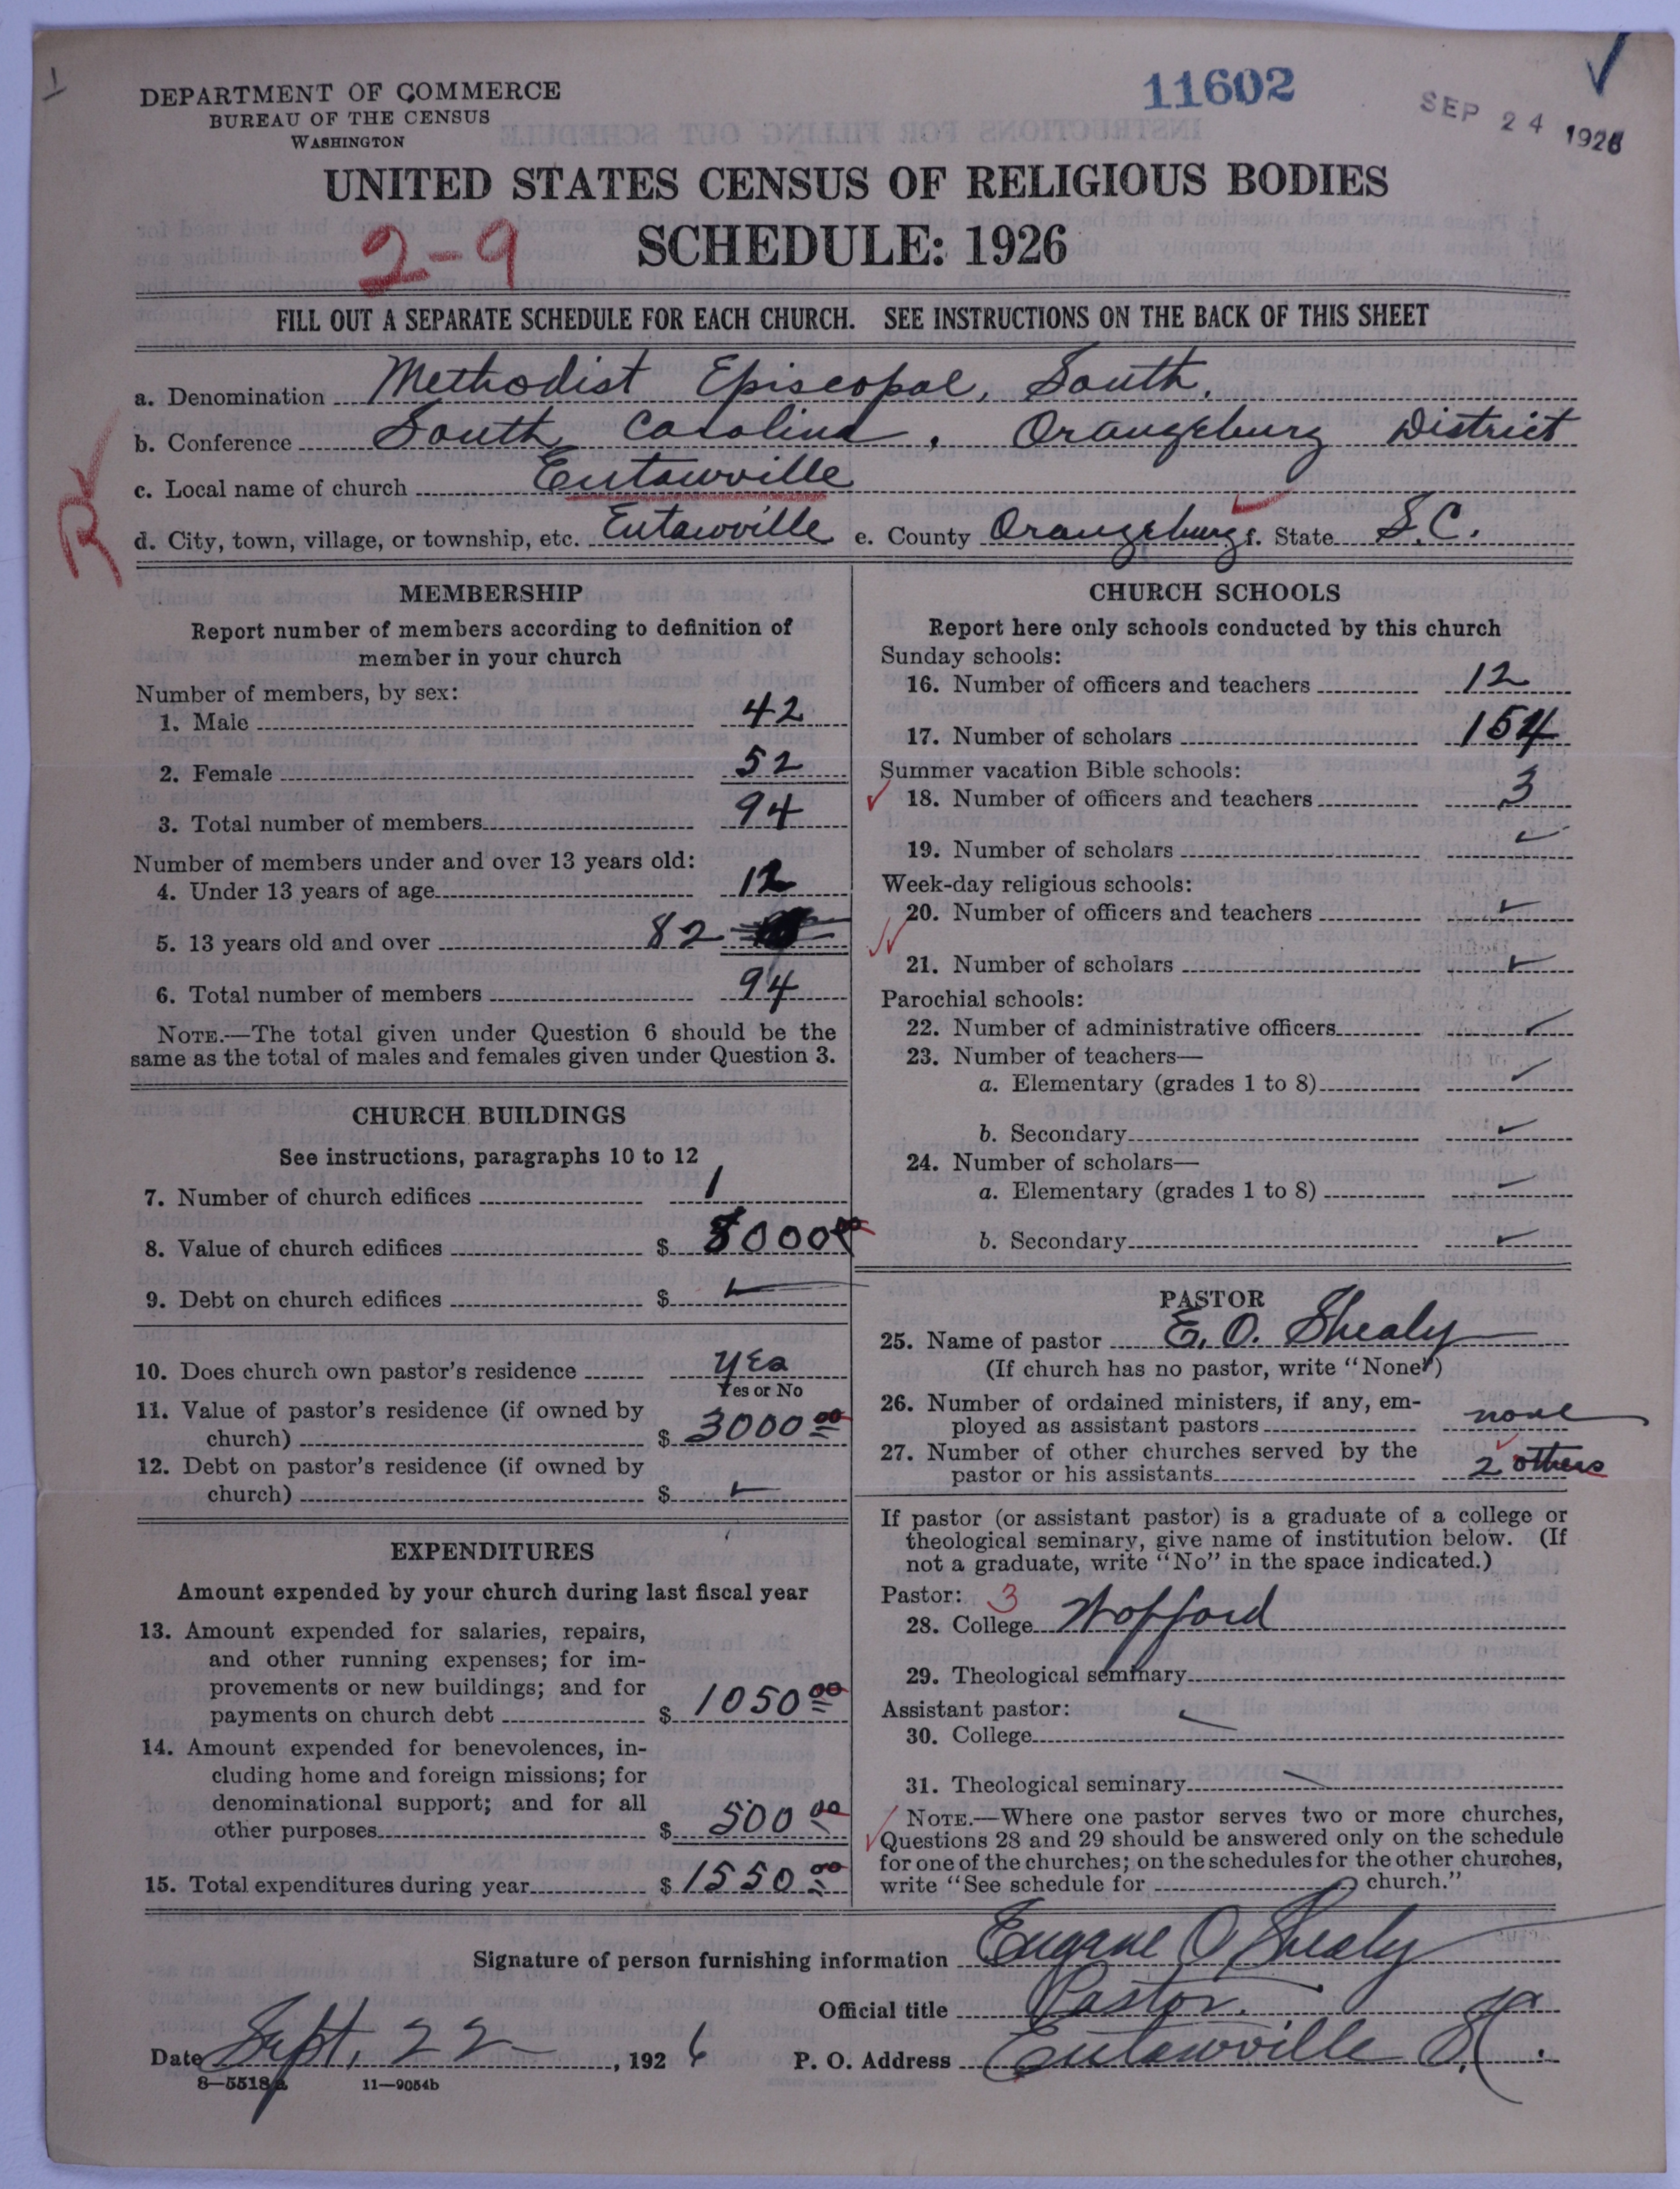 DEPARTMENT OF COMMERCE
BUREAU OF THE CENSUS
WASHINGTON
11602
SEP 24 1926
UNITED STATES CENSUS OF RELIGIOUS BODIES
2-9
SCHEDULE: 1926
FILL OUT A SEPARATE SCHEDULE FOR EACH CHURCH. SEE INSTRUCTIONS ON THE BACK OF THIS SHEET
a. Denomination Methodist Episcopal, South.
b. Conference South Carolina, Orangeburg District
c. Local name of church Eutawville
R
d. City, town, village, or township, etc. Eutawville e. County Orangeburg f. State S.C.
MEMBERSHIP
Report number of members according to definition of
member in your church
Number of members, by sex:
1. Male 42
2. Female 52
3. Total number of members 94
Number of members under and over 13 years old:
4. Under 13 years of age 12
5. 13 years old and over 82
6. Total number of members 94
NOTE.—The total given under Question 6 should be the
same as the total of males and females given under Question 3.
CHURCH BUILDINGS
See instructions, paragraphs 10 to 12
7. Number of church edifices 1
8. Value of church edifices $ 8000 00
9. Debt on church edifices $
10. Does church own pastor's residence yes
Yes or No
11. Value of pastor's residence (if owned by
church) $ 3000 00
12. Debt on pastor's residence (if owned by
church) $
EXPENDITURES
Amount expended by your church during last fiscal year
13. Amount expended for salaries, repairs,
and other running expenses; for im-
provements or new buildings; and for
payments on church debt $ 1050 00
14. Amount expended for benevolences, in-
cluding home and foreign missions; for
denominational support; and for all
other purposes $ 500 00
15. Total expenditures during year $ 1550 00
CHURCH SCHOOLS
Report here only schools conducted by this church
Sunday schools:
16. Number of officers and teachers 12
17. Number of scholars 154
Summer vacation Bible schools:
18. Number of officers and teachers 3
19. Number of scholars
Week-day religious schools:
20. Number of officers and teachers
21. Number of scholars
Parochial schools:
22. Number of administrative officers
23. Number of teachers—
a. Elementary (grades 1 to 8)
b. Secondary
24. Number of scholars—
a. Elementary (grades 1 to 8)
b. Secondary
PASTOR
25. Name of pastor E. O. Shealy
(If church has no pastor, write "None")
26. Number of ordained ministers, if any, em-
ployed as assistant pastors none
27. Number of other churches served by the
pastor or his assistants 2 others
If pastor (or assistant pastor) is a graduate of a college or
theological seminary, give name of institution below. (If
not a graduate, write "No" in the space indicated.)
Pastor: 3
28. College Wofford
29. Theological seminary
Assistant pastor:
30. College
31. Theological seminary
NOTE.—Where one pastor serves two or more churches,
Questions 28 and 29 should be answered only on the schedule
for one of the churches; on the schedules for the other churches,
write "See schedule for church."
Signature of person furnishing information Eugene O Shealy
Official title Pastor.
Date Sept. 22, 1926 P. O. Address Eutawville S.C.
8—5518a 11—9054b